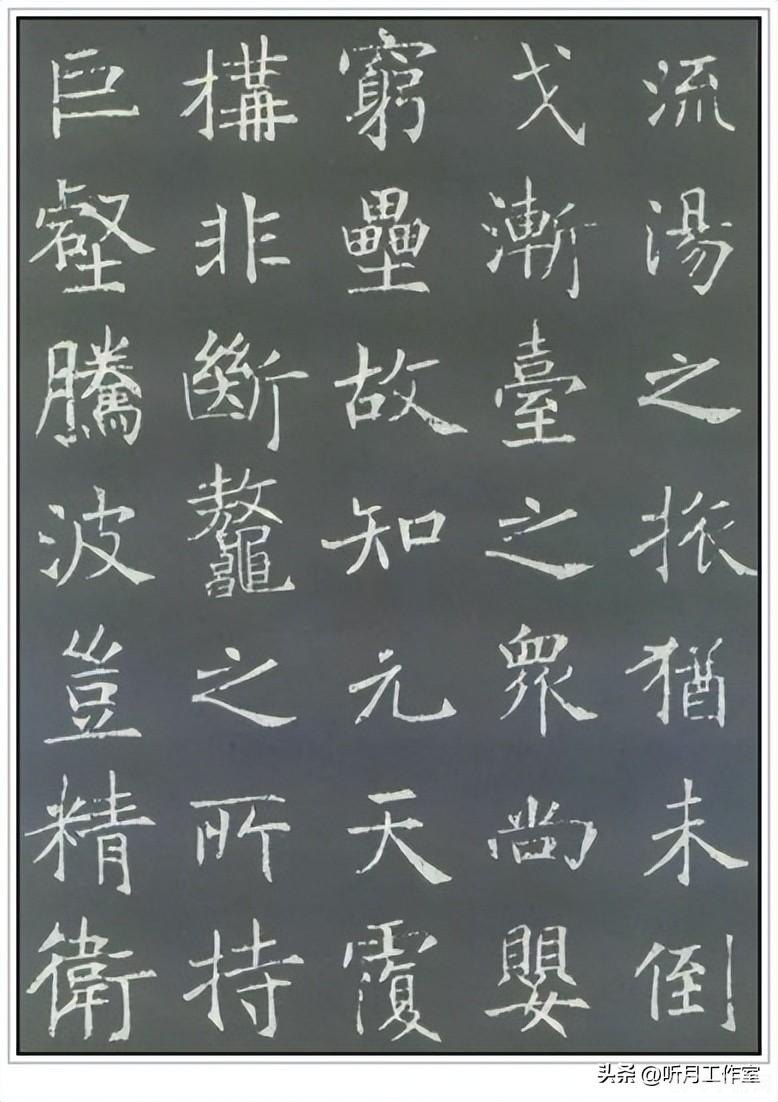 流湯之扺猶未倒
戈漸臺之眾尚嬰
窮壘故知元天覆
構非斷鼇之所持
巨壑騰波豈精衛
头条 @听月工作室